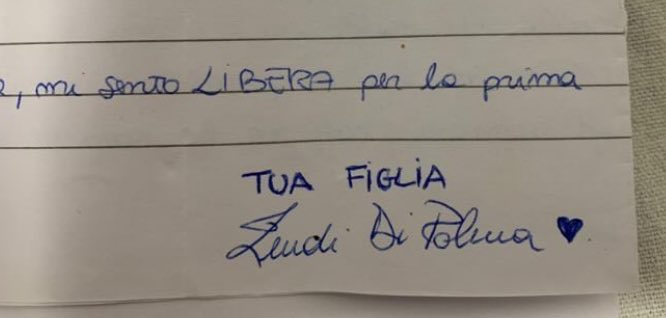 , mi sento LIBERA per la prima
TUA FIGLIA
Di Palma ♥